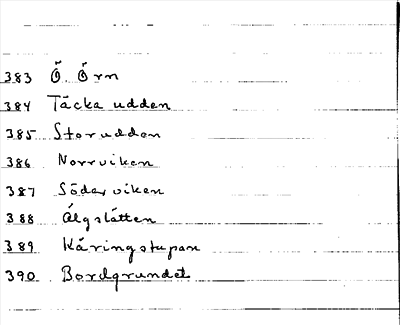 383 Ö. Örn
384 Täcka udden
385 Storudden
386 Norrviken
387 Söderviken
388 Älgslätten
389 Käringstupan
390 Bordgrundet